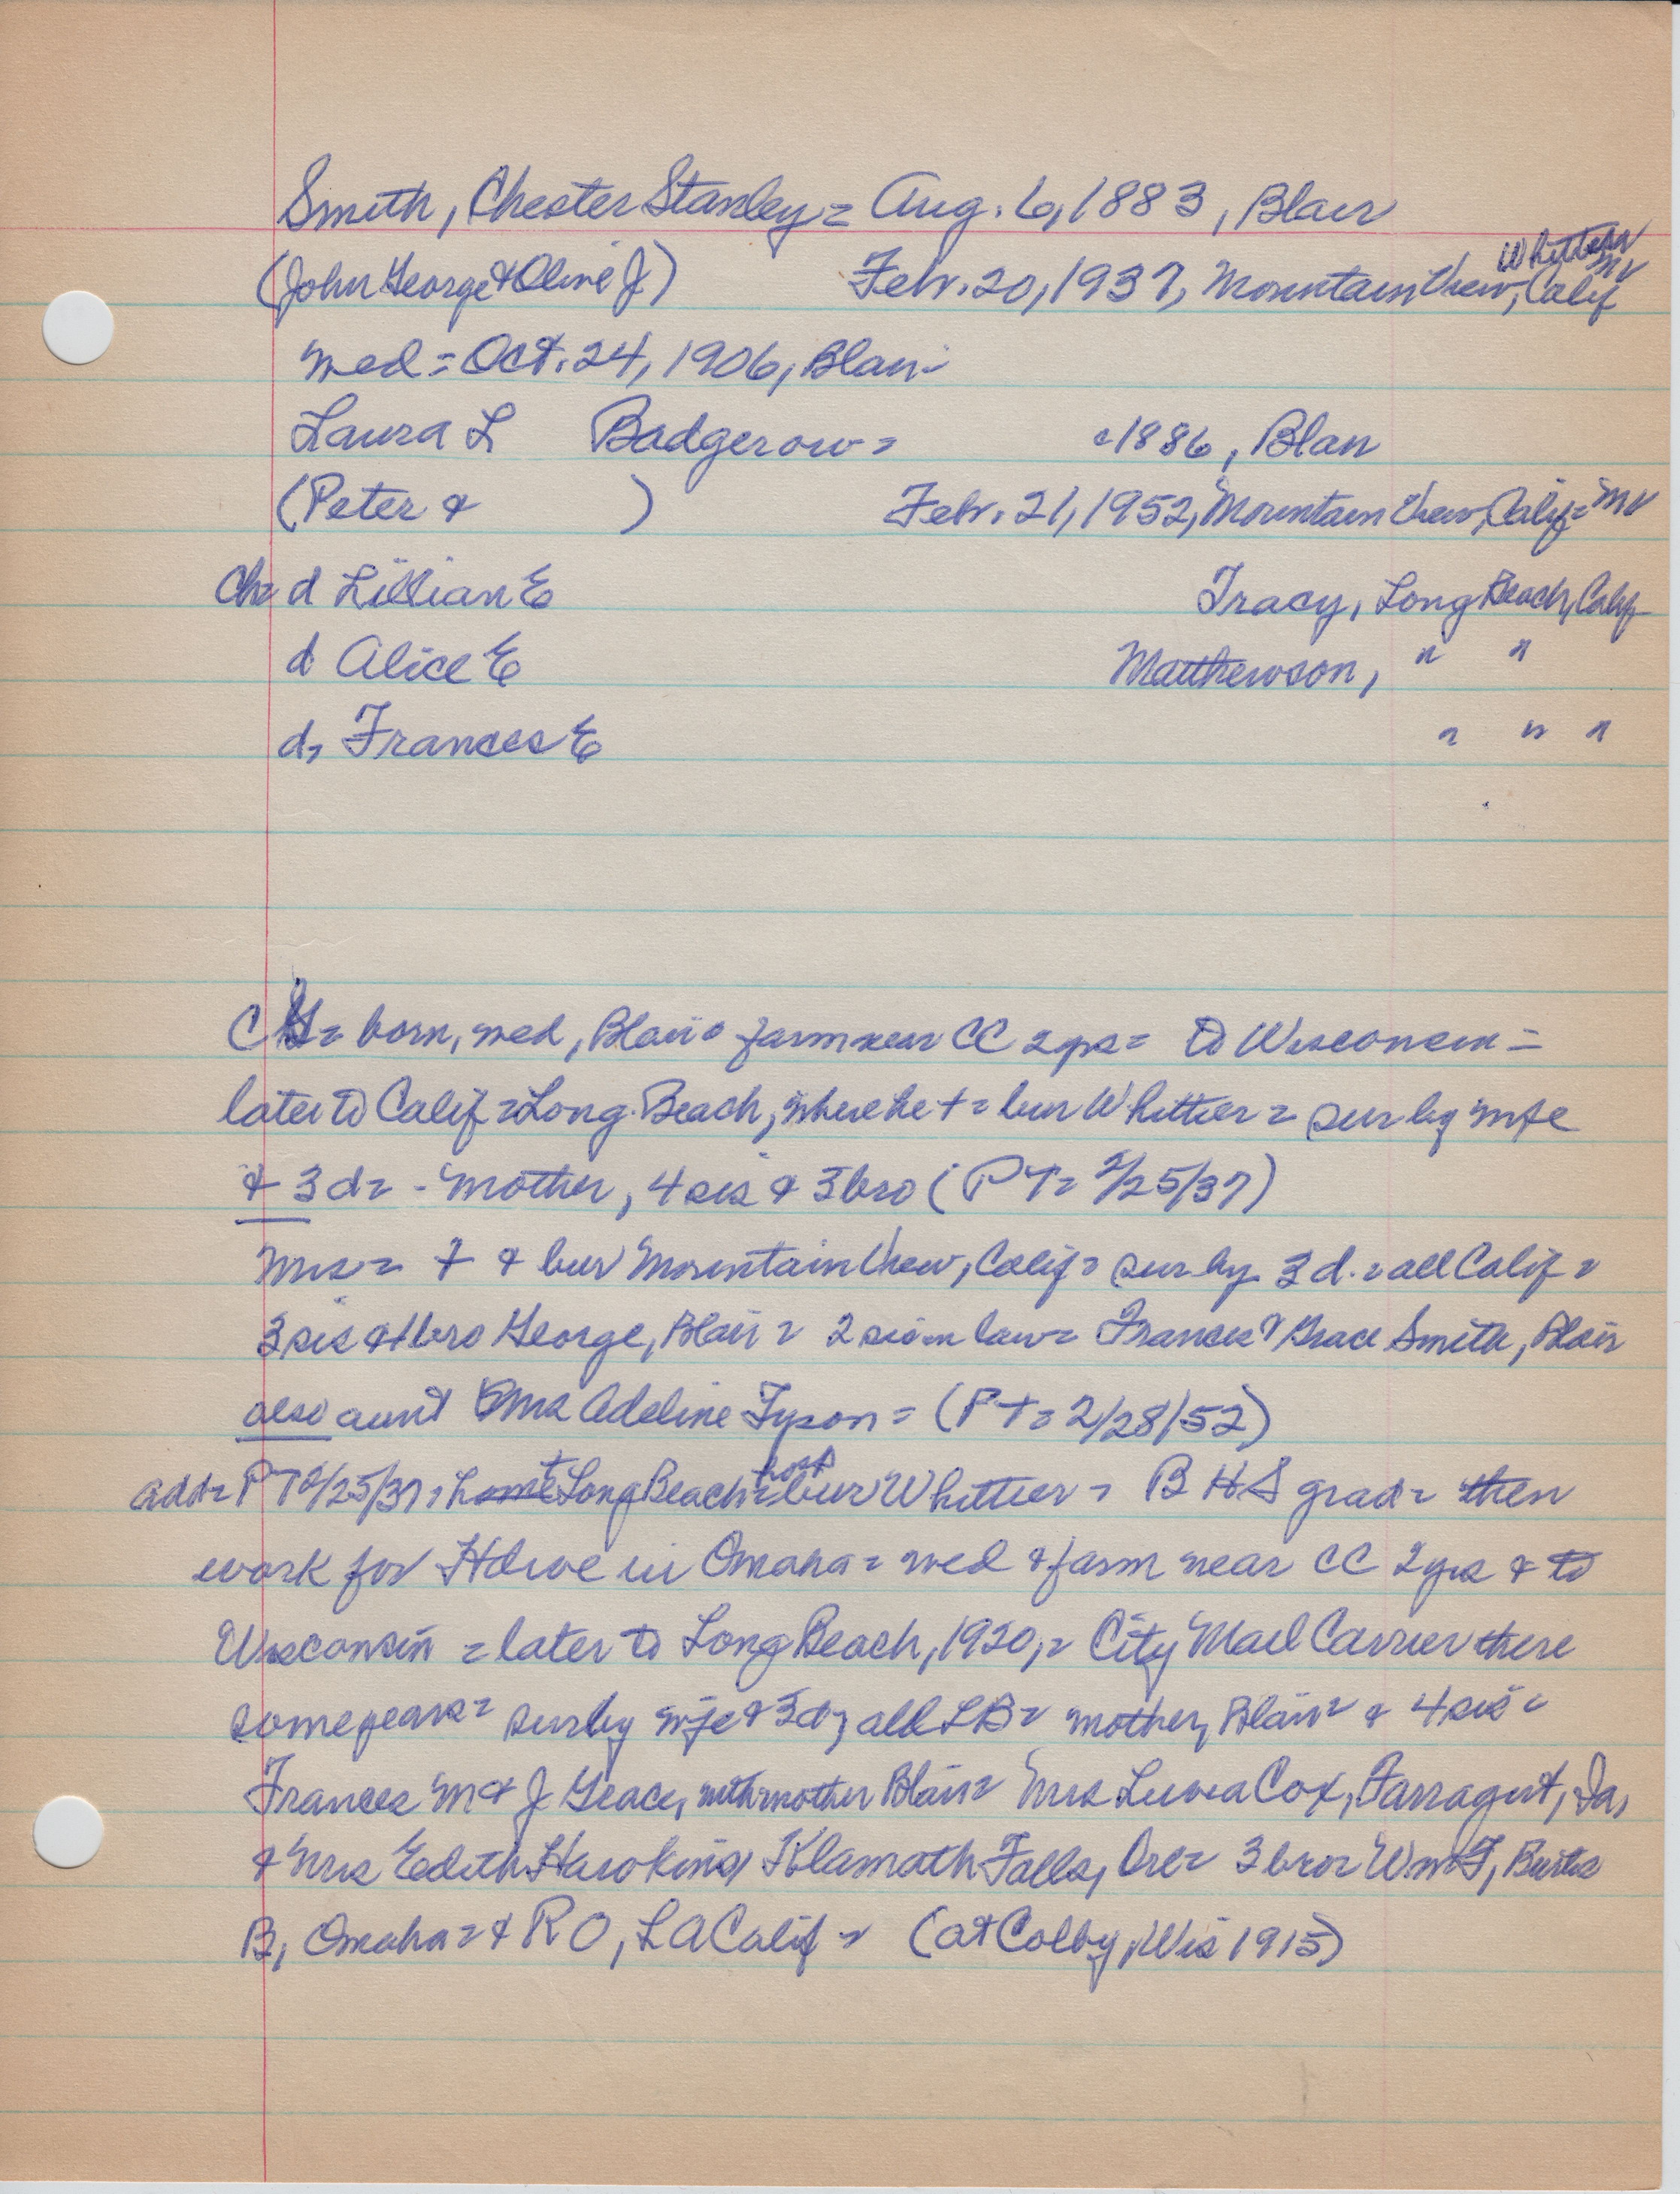 Smith, Chester Stanley = Aug. 6, 1883, Blair
Whittier
(John George & Olive J) Febr. 20, 1937, Mountain View, Calif MV
med = Oct. 24, 1906, Blair
Laura L Badgerow = c1886, Blair
(Peter & ) Febr. 21, 1952, Mountain View, Calif = MV
Ch = d Lillian E Tracy, Long Beach, Calif
d Alice E Matthewson, " "
d, Frances E " " "
C S = born, med, Blair = farm near CC 2 yrs = to Wisconsin =
later to Calif = Long Beach, where he + = bur Whittier = sur by wfe
& 3 d = - mother, 4 sis & 3 bro (PT = 2/25/37)
Mrs = + & bur Mountain View, Calif = sur by 3 d. = all Calif =
3 sis & 1 bro George, Blair = 2 sis in law = Frances & Grace Smith, Blair
also aunt Mrs Adeline Tyson = (PT = 2/28/52)
add = PT 2/25/37, home + Long Beach hosp = bur Whittier = B H S grad = then
work for Hdwe in Omaha = med & farm near CC 2 yrs & to
Wisconsin = later to Long Beach, 1920, = City Mail Carrier there
some years = sur by wfe & 3 d, all LB = mother, Blair = & 4 sis =
Frances M & J Grace, with mother Blair = Mrs Luvea Cox, Farragut, Ia,
& Mrs Edith Hawkins, Klamath Falls, Ore = 3 bro = Wm F, Burtis
B, Omaha = & R O, L A Calif = (at Colby, Wis 1915)